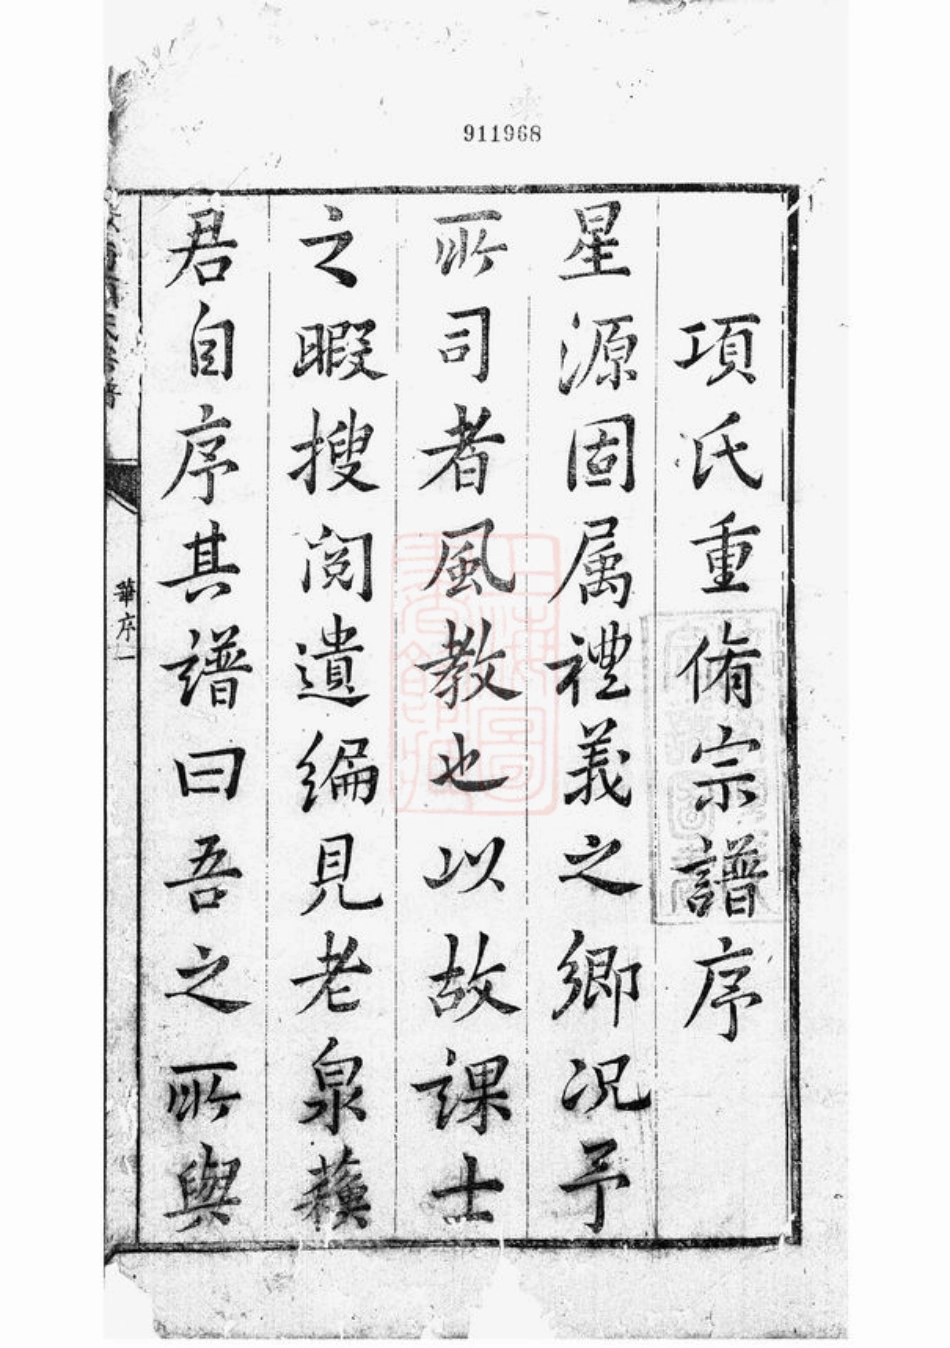 911968
項氏重脩宗譜序
星源固属禮義之鄉况予
所司者風教也以故課士
之暇搜閱遺編見老泉蘓
君自序其譜曰吾之所與
序一